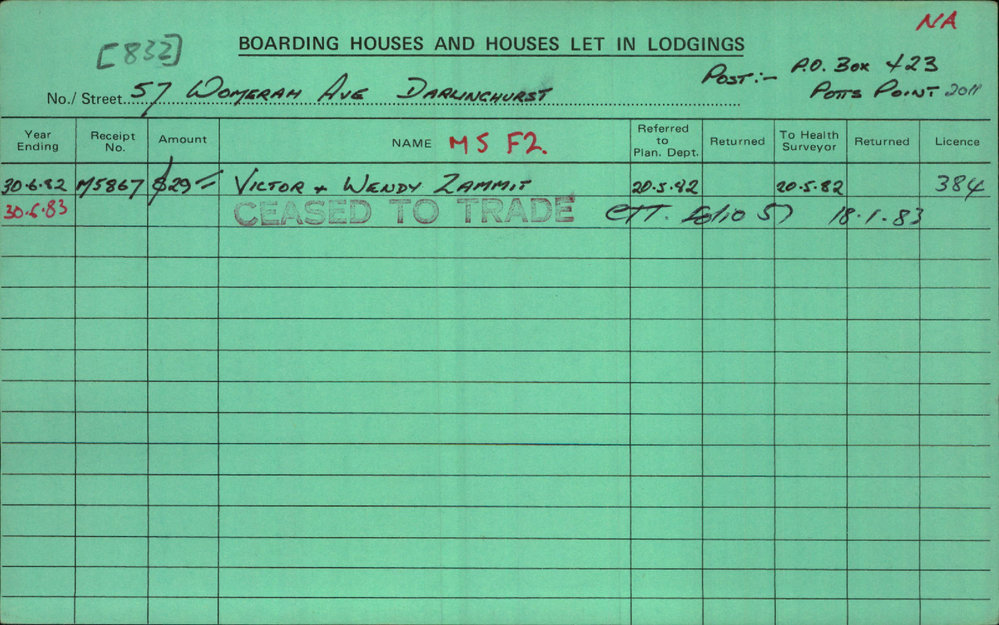 NA
[832]
BOARDING HOUSES AND HOUSES LET IN LODGINGS
Post:- P.O. Box 423
Potts Point 2011
No./ Street 57 Womerah Ave Darlinghurst
Year Ending Receipt No. Amount NAME MS F2. Referred to Plan. Dept. Returned To Health Surveyor Returned Licence
30.6.82 M5867 $29 Victor + Wendy Zammit 20.5.82 20.5.82 384
30.6.83 CEASED TO TRADE CTT. folio 57 18.1.83